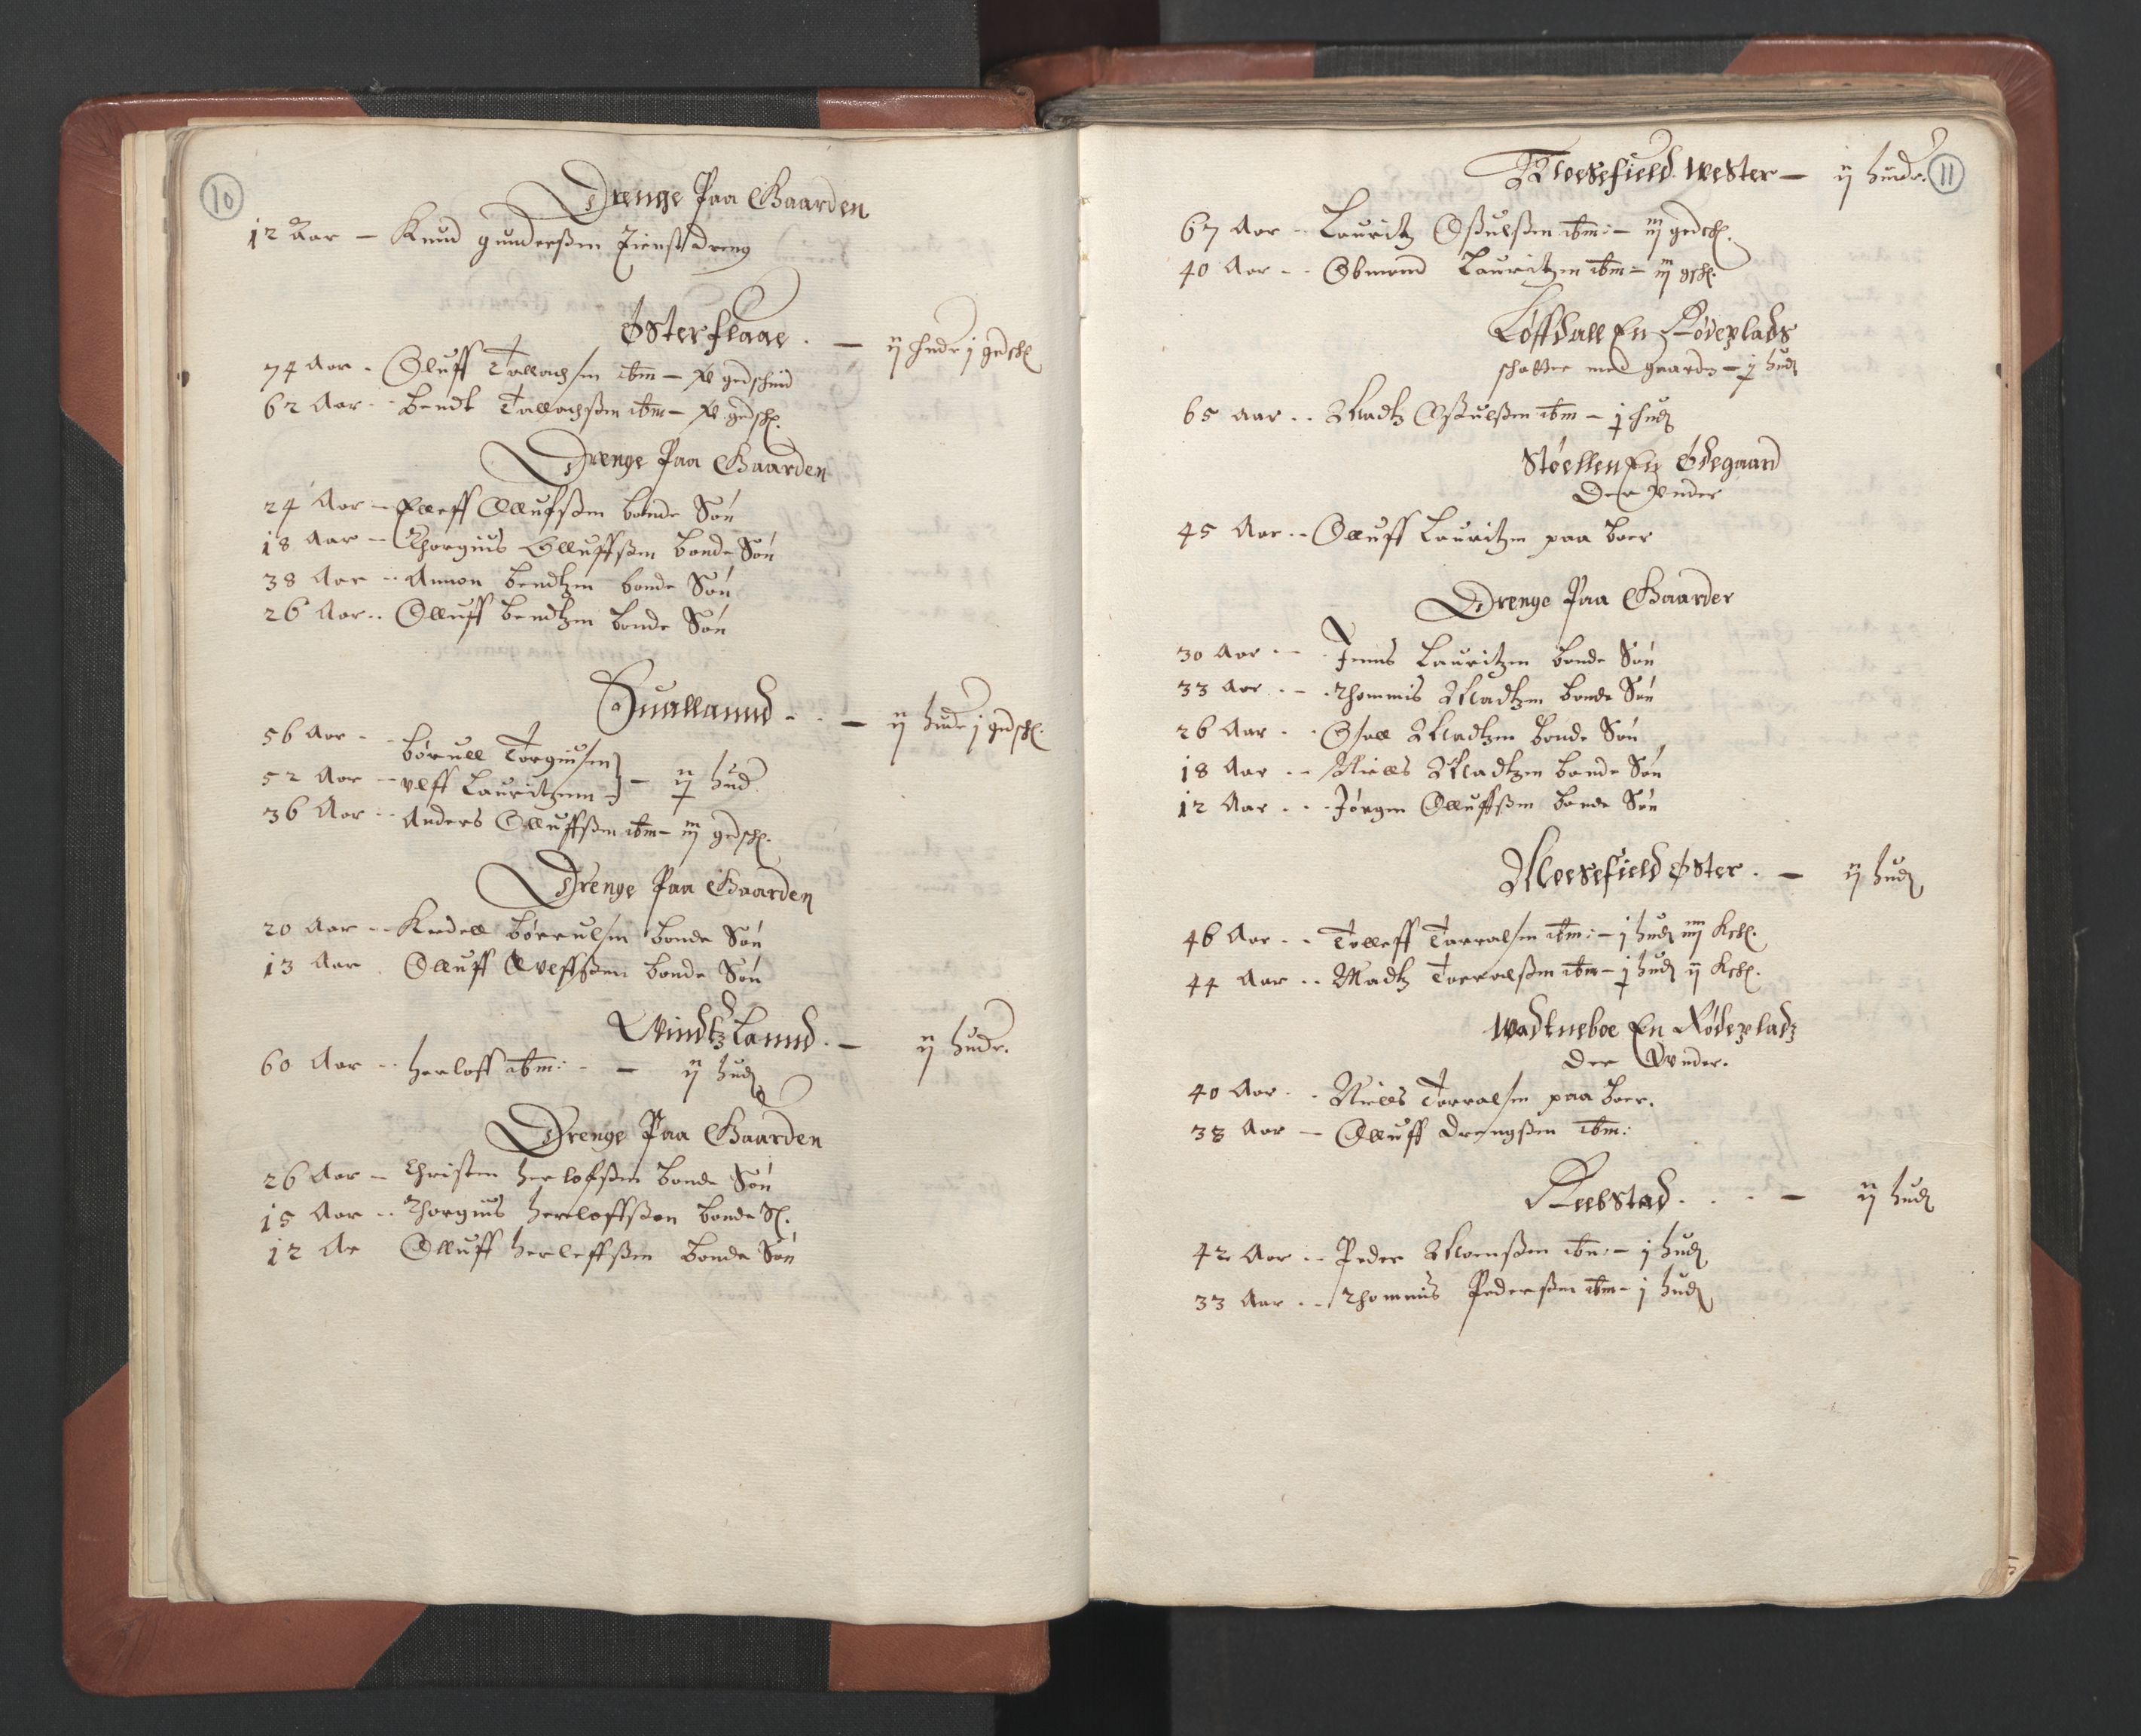 10
Drenge Paa Gaarden
12 Aar – Knud gundersøn Tienst dreng
Østerflaae. – ij hudr j gedsk
74 Aar. Oluff Tallachsøn ibm – xv gedschind
62 Aar Bendt Tallachsøn ibm – xv gedsk.
Drenge Paa Gaarden
24 Aar – Elleff Ollufsøn bonde Søn
18 Aar – Thorgius Olluffsøn bonde Søn
38 Aar – Amon bendtzen bonde Søn
26 Aar. Olluff bendtzen bonde Søn
Suallannd – ij hudr j gedsk.
56 Aar – børull Torgiusen
52 Aar – vlff Lauritzenn – ij hud
36 Aar – Anders Olluffsøn ibm – iij gedsk.
Drenge Paa Gaarden
20 Aar – Kiedell børrulsen bonde Søn
13 Aar Olluff Wlffsøn bonde Søn
Windtzlannd. – ij hudr.
60 Aar – herloff ibm: – ij hud
Drenge Paa Gaarden
26 Aar – Christen herlofsøn bonde Søn
15 Aar – Thorgius herloffsøn bonde S.
12 Ar Olluff herleffsøn bonde Søn
11
Moesefield Wester – ij hudr.
67 Aar – Lauritz Ossulsøn ibm: – iij gedsk.
40 Aar – Osmond Lauritzen ibm – iij gsk.
Løffdall En Rødeplads
schatter med gaarden – j hud
65 aar – Madtz Ossulsøn ibm – j hud
Støellen En Ødegaard
der Vnder
45 Aar – Olluff Lauritzen paa boer
Drenge Paa Gaarder
30 Aar – Jenns Lauritzen bonde Søn
33 Aar – Thommis Madtzen bonde Søn
26 Aar – Osall Madtzen bonde Søn
18 Aar – Niels Madtzen bonde Søn
12 Aar – Jørgen Olluffsøn bonde Søn
Moesefield Øster. – ij hud
46 Aar – Tolleff Tarralsen ibm: – j hud iiij Ksk.
44 Aar – Madtz Torralsøn ibm – j hud ij Ksk.
Wadtneboe En Rødepladz
der Wnder.
40 Aar – Niels Torralsen paa boer.
38 Aar – Olluff Drengsøn ibm:
Reebstad – ij hud
42 Aar – Peder Moensøn ibm: – j hud
33 Aar – Thommis Pedersøn ibm – j hud